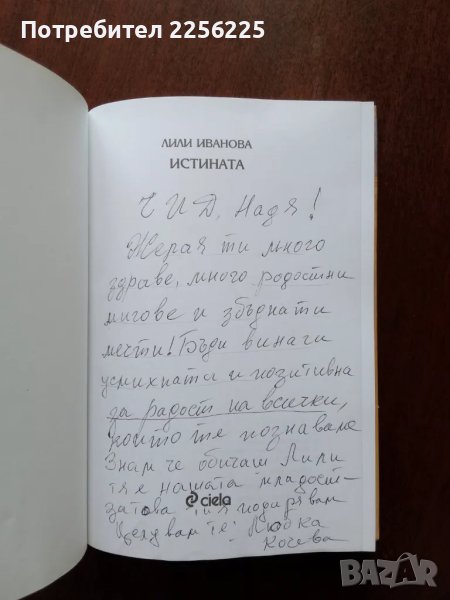 Потребител 2256225
ЛИЛИ ИВАНОВА
ИСТИНАТА
Ч И Д, Надя!
Желая ти много
здраве, много радостни
мигове и сбъднати
мечти! Бъди винаги
усмихната и позитивна
за радост на всички,
които те познаваме
Знам че обичаш Лили
тя е нашата младост-
затова ти я подарявам
Целувам те! Любка
Кочева
ciela
BAZAR